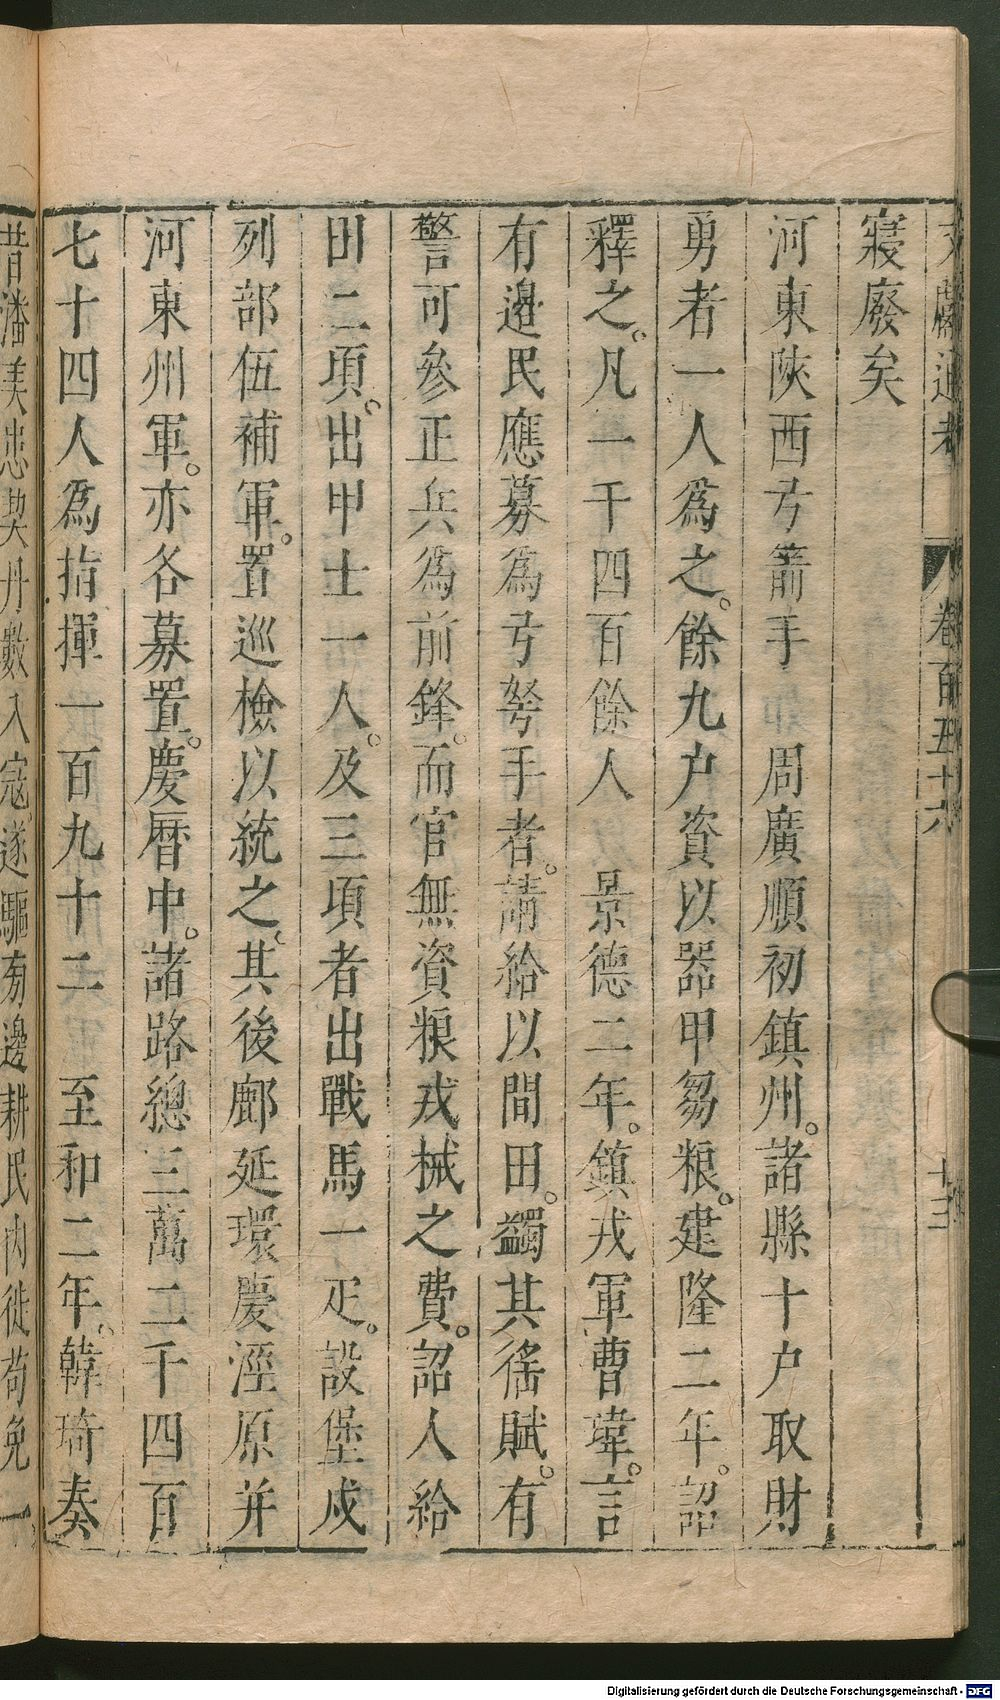 文獻通考 卷百五十六 十三
寢廢矣
河東陝西弓箭手 周廣順初鎮州。諸縣十户取財
勇者一人爲之。餘九户資以器甲芻粮。建隆二年。詔
釋之。凡一千四百餘人 景德二年。鎮戎軍曹瑋。言
有邉民應募爲弓弩手者。請給以間田。蠲其徭賦。有
警可參正兵爲前鋒。而官無資粮戎械之費。詔人給
田二項。出甲士一人。及三頃者出戰馬一疋。設堡戍
列部伍補軍。置巡檢以統之。其後鄜延環慶涇原并
河東州軍。亦各募置。慶曆中。諸路總三萬二千四百
七十四人爲指揮一百九十二 至和二年。韓琦奏
昔潘美患契丹數入寇。遂驅旁邊耕民内徙苟免一
Digitalisierung gefördert durch die Deutsche Forschungsgemeinschaft - DFG